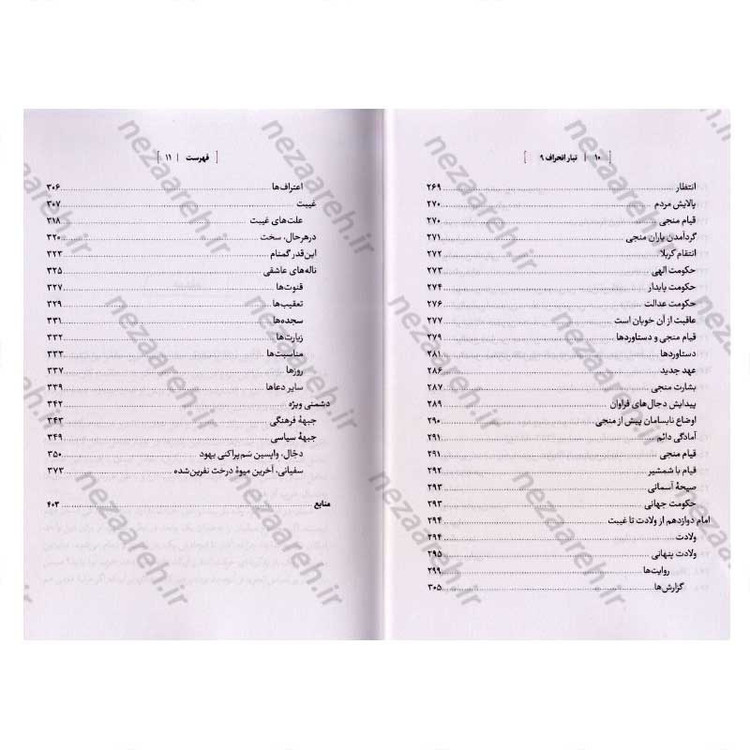 [ ۱۰ | تبار انحراف ۹ ]
انتظار ۲۶۹
پالایش مردم ۲۷۰
قیام منجی ۲۷۰
گردآمدن یاران منجی ۲۷۱
انتقام کربلا ۲۷۲
حکومت الهی ۲۷۳
حکومت پایدار ۲۷۴
حکومت عدالت ۲۷۶
عاقبت از آن خوبان است ۲۷۷
قیام منجی و دستاوردها ۲۷۹
دستاوردها ۲۸۱
عهد جدید ۲۸۶
بشارت منجی ۲۸۷
پیدایش دجال‌های فراوان ۲۸۹
اوضاع نابسامان پیش از منجی ۲۹۰
آمادگی دائم ۲۹۱
قیام منجی ۲۹۱
قیام با شمشیر ۲۹۲
صیحهٔ آسمانی ۲۹۳
حکومت جهانی ۲۹۳
امام دوازدهم از ولادت تا غیبت ۲۹۴
ولادت ۲۹۴
ولادت پنهانی ۲۹۵
روایت‌ها ۲۹۹
گزارش‌ها ۳۰۵
[ فهرست | ۱۱ ]
اعتراف‌ها ۳۰۶
غیبت ۳۰۷
علت‌های غیبت ۳۱۸
درهرحال، سخت ۳۲۰
این‌قدر گمنام ۳۲۳
ناله‌های عاشقی ۳۲۵
قنوت‌ها ۳۲۷
تعقیب‌ها ۳۲۹
سجده‌ها ۳۳۱
زیارت‌ها ۳۳۲
مناسبت‌ها ۳۳۳
روزها ۳۳۷
سایر دعاها ۳۳۹
دشمنی ویژه ۳۴۲
جبههٔ فرهنگی ۳۴۳
جبههٔ سیاسی ۳۴۹
دجّال، واپسین سَم‌پراکنی یهود ۳۵۰
سفیانی، آخرین میوهٔ درخت نفرین‌شده ۳۷۳
منابع ۴۰۳
nezaareh.ir
nezaareh.ir
nezaareh.ir
nezaareh.ir
nezaareh.ir
nezaareh.ir
nezaareh.ir
nezaareh.ir
nezaareh.ir